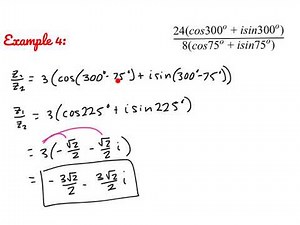 Example 4:
24(cos300° + isin300°)
8(cos75° + isin75°)
z₁/z₂ = 3(cos(300°-75°) + isin(300°-75°))
z₁/z₂ = 3(cos225° + isin225°)
= 3(-√2/2 - √2/2 i)
= -3√2/2 - 3√2/2 i